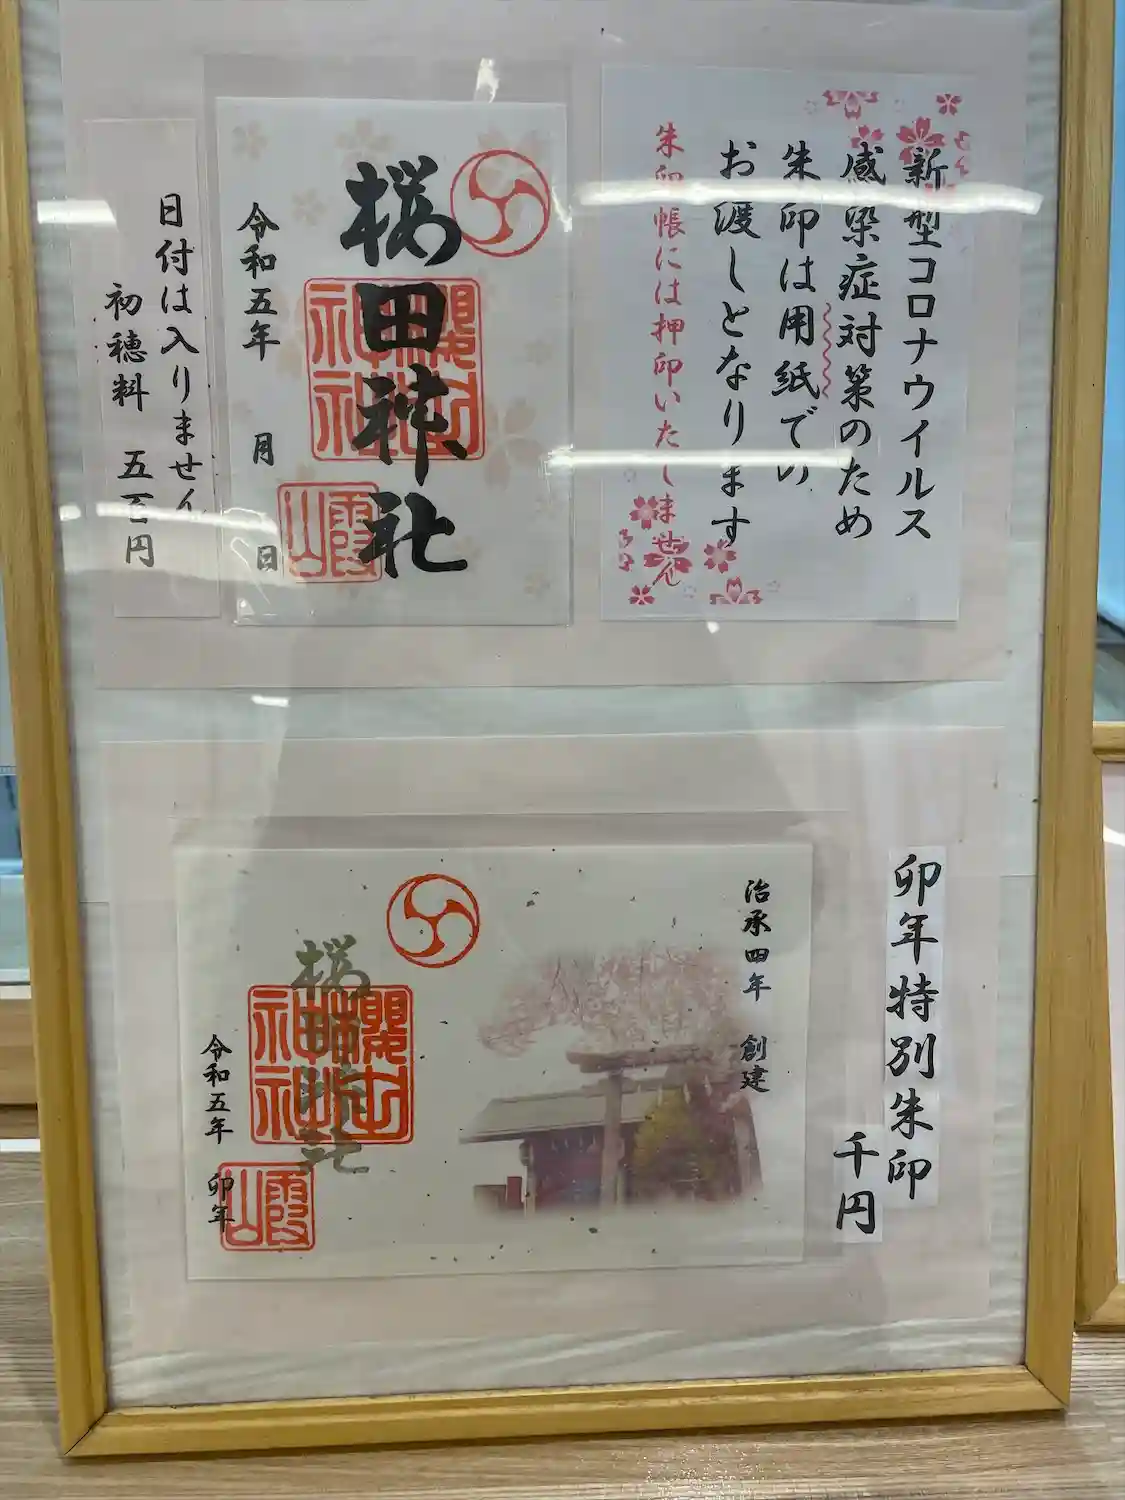 新型コロナウイルス
感染症対策のため
朱印は用紙での
お渡しとなります
朱印帳には押印いたしません
櫻田神社
櫻田神社
霞山
令和五年 月 日
日付は入りません
初穂料 五百円
卯年特別朱印
千円
治承四年 創建
櫻田神社
櫻田神社
霞山
令和五年 卯年